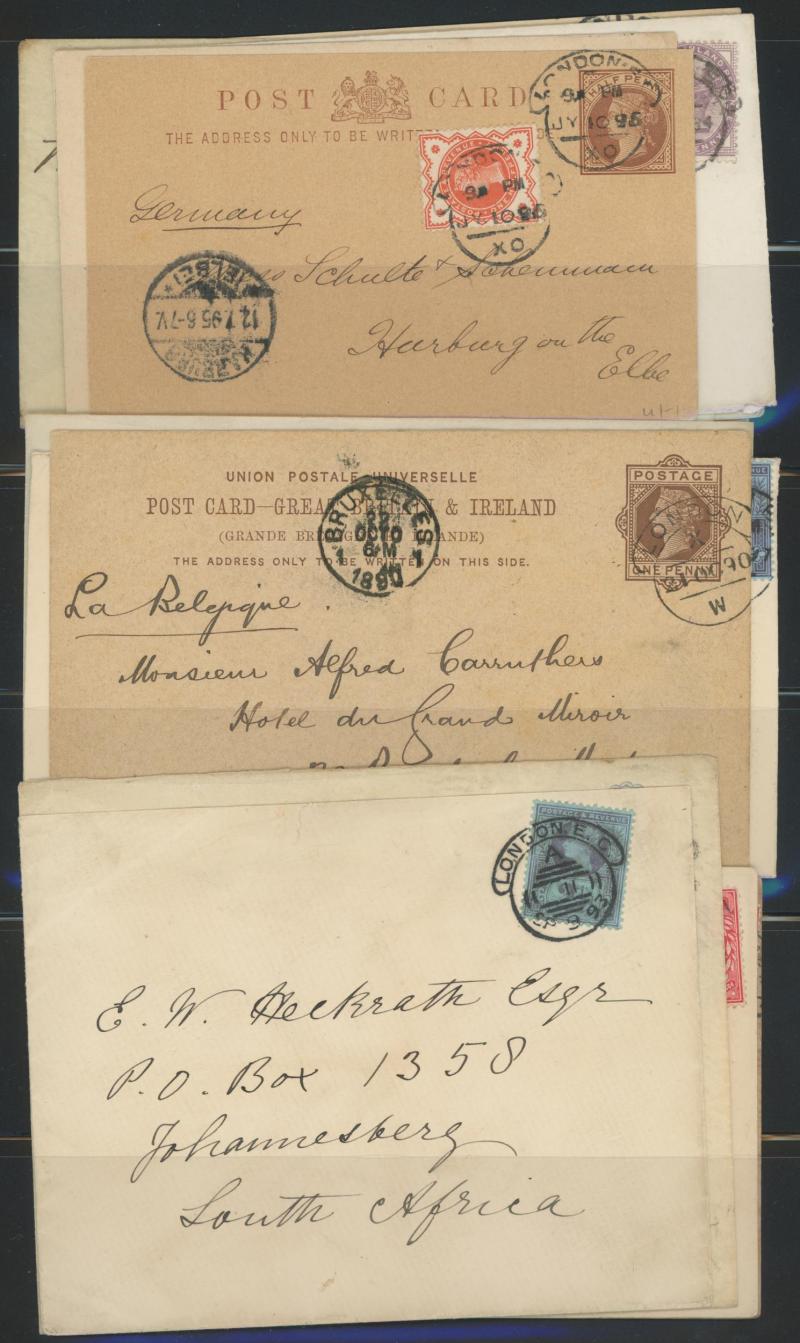 POST CARD
THE ADDRESS ONLY TO BE WRITTEN
HALF PENNY
LONDON
PM
JY 10 95
XO
LONDON
PM
JY 10 95
XO
Germany
Schulte &
Harburg on the
Elbe
HARBURG
12.7.95.6-7V.
(ELBE)
UNION POSTALE UNIVERSELLE
POST CARD—GREAT BRITAIN & IRELAND
(GRANDE BRETAGNE IRLANDE)
THE ADDRESS ONLY TO BE WRITTEN ON THIS SIDE.
POSTAGE
ONE PENNY
BRUXELLES
1 1
22
OCTO
6-M
1890
LONDON
M
La Belgique.
Monsieur Alfred Carruthers
Hotel du Grand Miroir
POSTAGE & REVENUE
LONDON. E. C.
A
11
SP 9
93
E. W. Heckrath Esqr
P.O. Box 1358
Johannesberg
South Africa